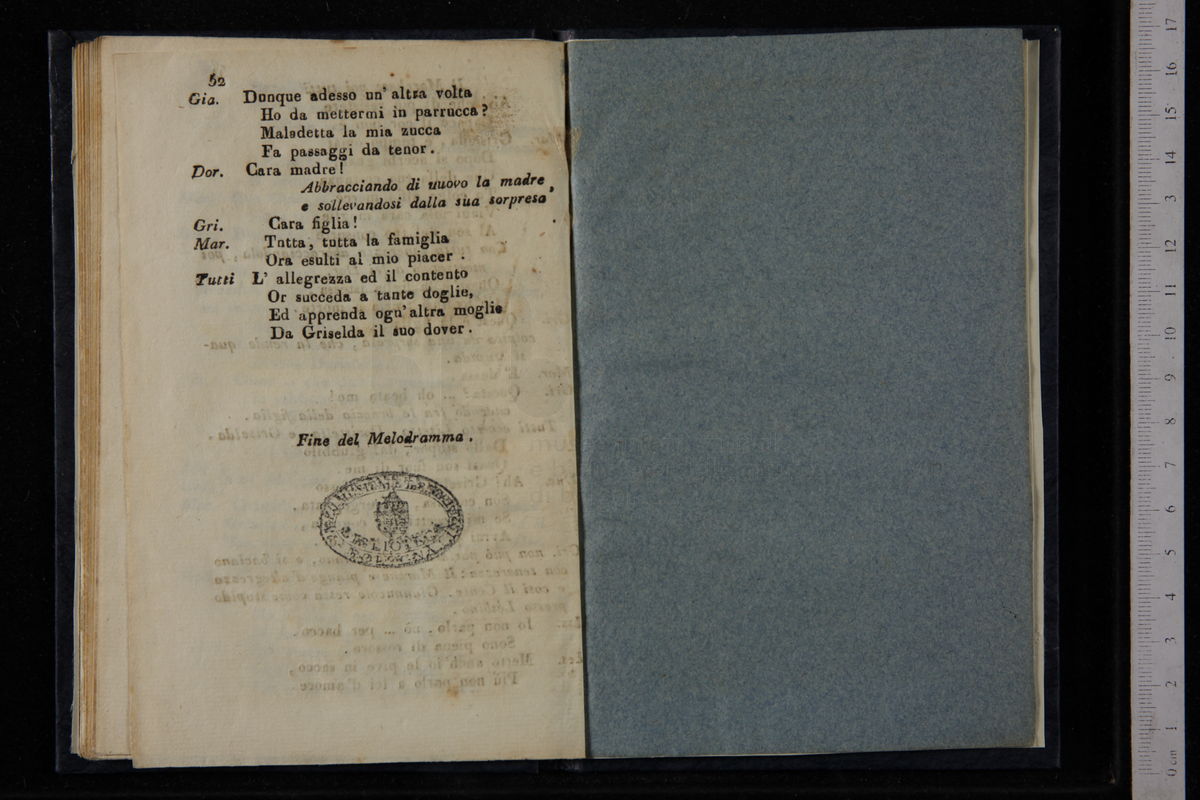 52
Gia. Dunque adesso un' altra volta
Ho da mettermi in parrucca?
Maladetta la mia zucca
Fa passaggi da tenor.
Dor. Cara madre!
Abbracciando di nuovo la madre,
e sollevandosi dalla sua sorpresa
Gri. Cara figlia!
Mar. Tutta, tutta la famiglia
Ora esulti al mio piacer.
Tutti L' allegrezza ed il contento
Or succeda a tante doglie,
Ed apprenda ogn' altra moglie
Da Griselda il suo dover.
Fine del Melodramma.
0 cm 1 2 3 4 5 6 7 8 9 10 11 12 13 14 15 16 17